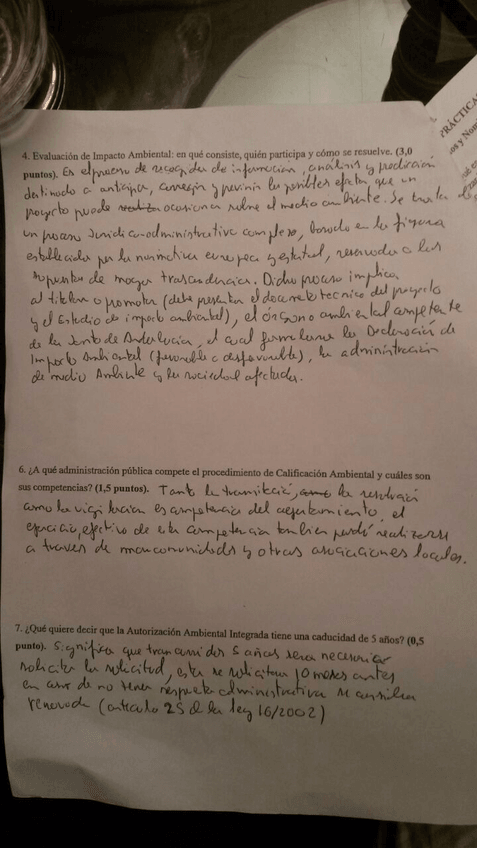 PRÁCTICA
os y Nom
4. Evaluación de Impacto Ambiental: en qué consiste, quién participa y cómo se resuelve. (3,0
puntos). Es el proceso de recogida de información, análisis y predicción
destinado a anticipar, corregir y prevenir los posibles efectos que un
proyecto puede ocasionar sobre el medio ambiente. Se trata de
un proceso Jurídico-administrativo complejo, basado en la figura
establecida por la normativa europea y estatal, reservada a los
supuestos de mayor trascendencia. Dicho proceso implica
al titular o promotor (debe presentar el documento técnico del proyecto
y el Estudio de impacto ambiental), el órgano ambiental competente
de la Junta de Andalucía, el cual formulara la Declaración de
Impacto Ambiental (favorable o desfavorable), la administración
de medio Ambiente y la sociedad afectada.
6. ¿A qué administración pública compete el procedimiento de Calificación Ambiental y cuáles son
sus competencias? (1,5 puntos). Tanto la tramitació, la resolució
como la vigilancia es competencia del ayuntamiento, el
ejercicio efectivo de esta competencia tambien podrá realizarse
a traves de mancomunidades y otras asociaciones locales.
7. ¿Qué quiere decir que la Autorización Ambiental Integrada tiene una caducidad de 5 años? (0,5
punto). Significa que trancurridos 5 años sera necesario
solicitar la solicitud, esta se solicitara 10 meses antes
en caso de no tener respuesta administrativa se considera
renovada (articulo 25 de la ley 16/2002)